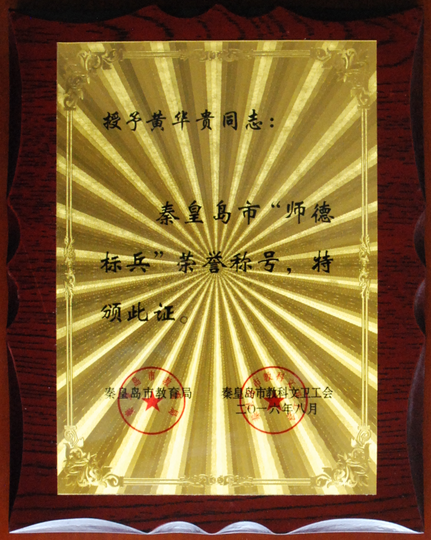 授予黄华贵同志：
秦皇岛市“师德
标兵”荣誉称号，特
颁此证。
秦皇岛市教育局
秦皇岛市教科文卫工会
二〇一六年八月